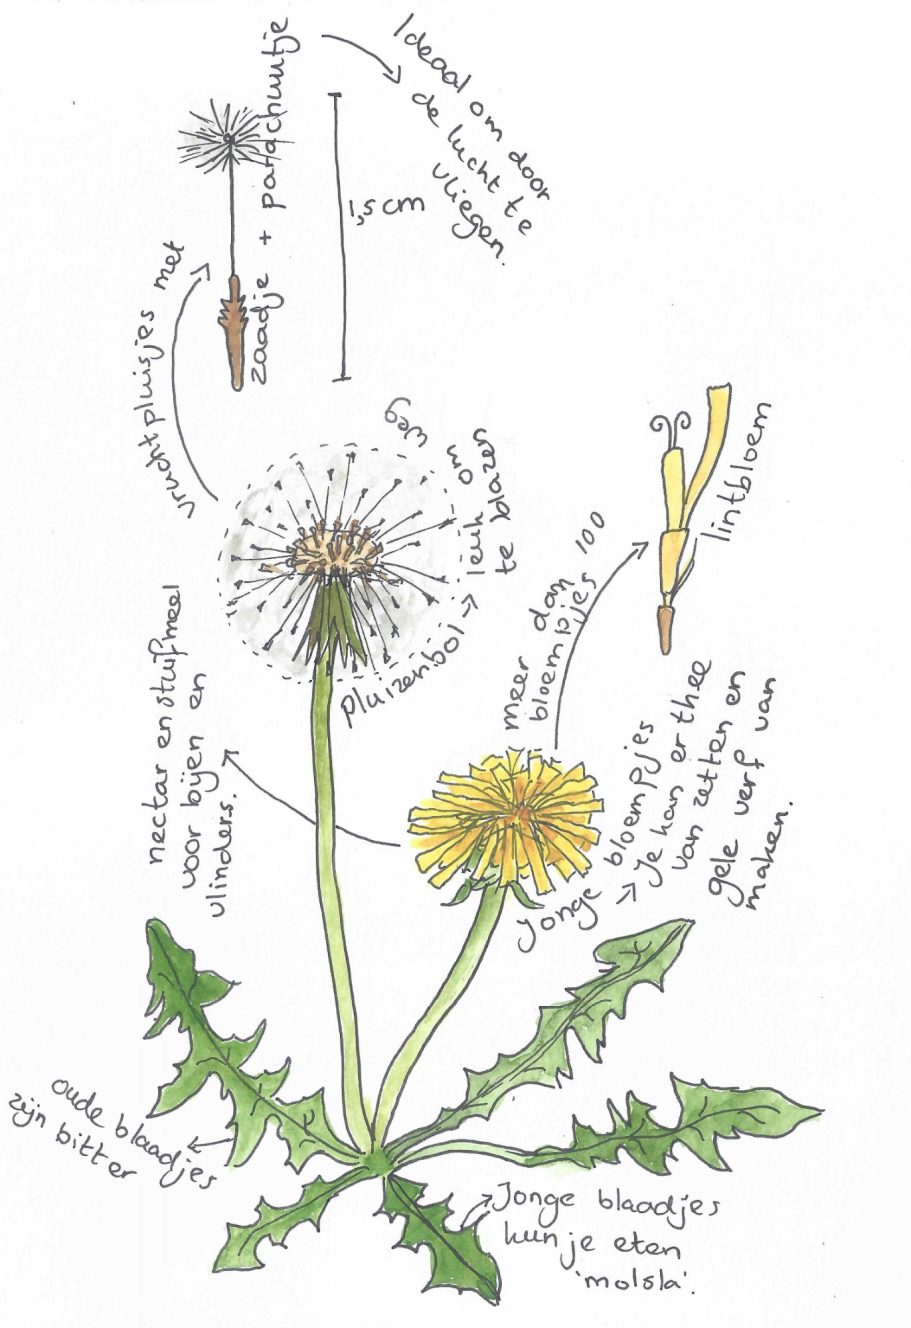 Ideaal om door
de lucht te
vliegen.
zaadje + parachuutje
1,5 cm
vruchtpluisjes met
weg
leuk om
te blazen
pluizenbol →
lintbloem
meer dan 100
bloempjes
nectar en stuifmeel
voor bijen en
vlinders.
Jonge bloempjes
→ Je kan er thee
van zetten en
gele verf van
maken.
oude blaadjes
zijn bitter
Jonge blaadjes
kun je eten
'molsla'.